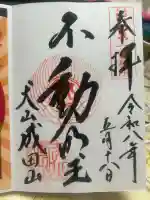 奉拝
令和八年
五月十八日
不動明王
犬山成田山